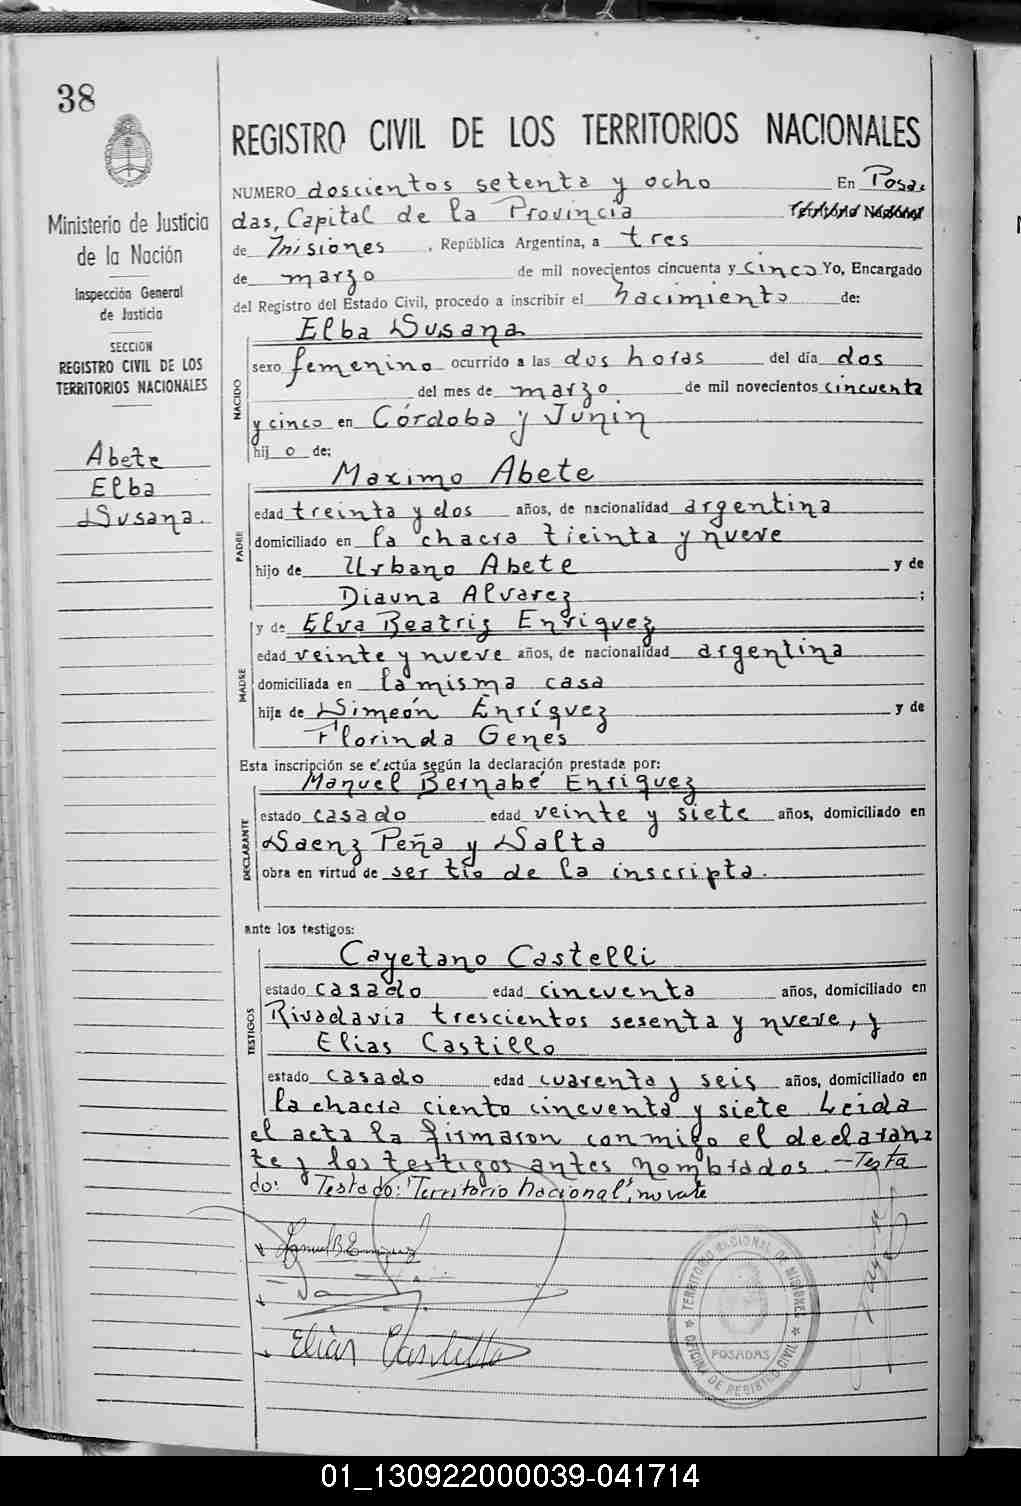 38
Ministerio de Justicia
de la Nación
Inspección General
de Justicia
SECCION
REGISTRO CIVIL DE LOS
TERRITORIOS NACIONALES
Abete
Elba
Susana.
REGISTRO CIVIL DE LOS TERRITORIOS NACIONALES
NUMERO doscientos setenta y ocho En Posa-
das, Capital de la Provincia Territorio Nacional
de Misiones, República Argentina, a tres
de marzo de mil novecientos cincuenta y cinco Yo, Encargado
del Registro del Estado Civil, procedo a inscribir el nacimiento de:
Elba Susana
NACIDO
sexo femenino ocurrido a las dos horas del día dos
del mes de marzo de mil novecientos cincuenta
y cinco en Córdoba y Junin
hij o de:
Maximo Abete
PADRE
edad treinta y dos años, de nacionalidad argentina
domiciliado en la chacra treinta y nueve
hijo de Urbano Abete y de
Diauna Alvarez ;
y de Elva Beatriz Enriquez
MADRE
edad veinte y nueve años, de nacionalidad argentina
domiciliada en la misma casa
hija de Simeón Enríquez y de
Florinda Genes
Esta inscripción se efectúa según la declaración prestada por:
Manuel Bernabé Enriquez
DECLARANTE
estado casado edad veinte y siete años, domiciliado en
Saenz Peña y Salta
obra en virtud de ser tío de la inscripta.
ante los testigos:
Cayetano Castelli
TESTIGOS
estado casado edad cincuenta años, domiciliado en
Rivadavia trescientos sesenta y nueve, y
Elias Castillo
estado casado edad cuarenta y seis años, domiciliado en
la chacra ciento cincuenta y siete Leida
el acta la firmaron conmigo el declaran-
te y los testigos antes nombrados.-Testa
do: Testado: "Territorio nacional", no vale
Manuel B Enriquez
Elias Castillo
TERRITORIO NACIONAL DE MISIONES
POSADAS
OFICINA DE REGISTRO CIVIL
01_130922000039-041714